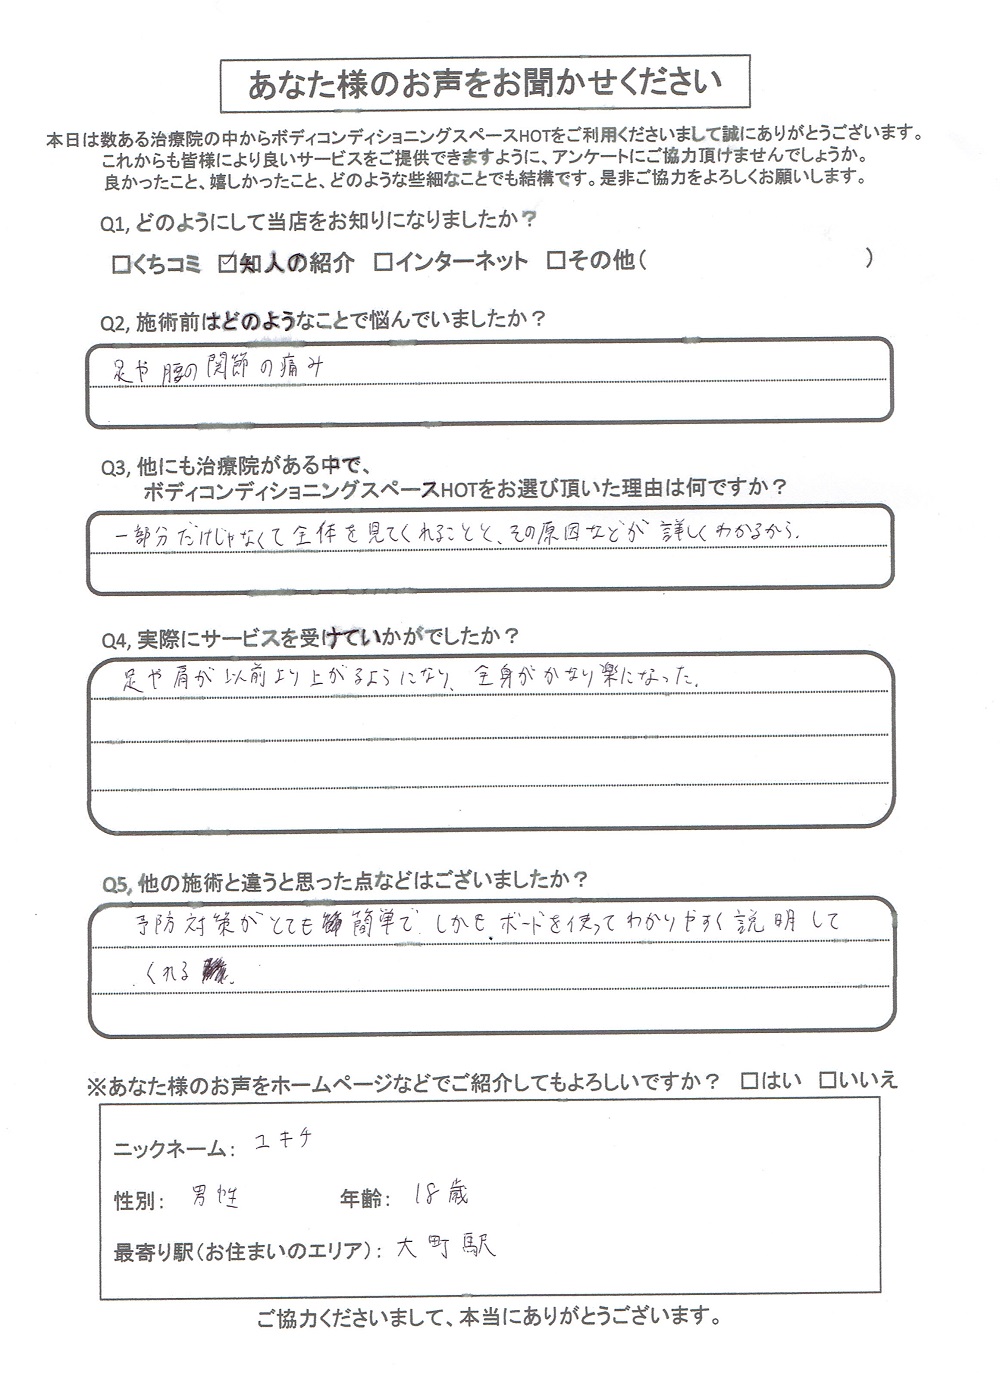 あなた様のお声をお聞かせください
本日は数ある治療院の中からボディコンディショニングスペースHOTをご利用くださいまして誠にありがとうございます。
これからも皆様により良いサービスをご提供できますように、アンケートにご協力頂けませんでしょうか。
良かったこと、嬉しかったこと、どのような些細なことでも結構です。是非ご協力をよろしくお願いします。
Q1, どのようにして当店をお知りになりましたか？
□くちコミ ☑知人の紹介 □インターネット □その他( )
Q2, 施術前はどのようなことで悩んでいましたか？
足や腰の関節の痛み
Q3, 他にも治療院がある中で、
ボディコンディショニングスペースHOTをお選び頂いた理由は何ですか？
一部分だけじゃなくて全体を見てくれることと、その原因などが詳しくわかるから.
Q4, 実際にサービスを受けていかがでしたか？
足や肩が以前より上がるようになり、全身がかなり楽になった.
Q5, 他の施術と違うと思った点などはございましたか？
予防対策がとても簡単で、しかも、ボードを使ってわかりやすく説明して
くれる.
※あなた様のお声をホームページなどでご紹介してもよろしいですか？ □はい □いいえ
ニックネーム： ユキチ
性別： 男性 年齢： 18歳
最寄り駅（お住まいのエリア）： 大町駅
ご協力くださいまして、本当にありがとうございます。